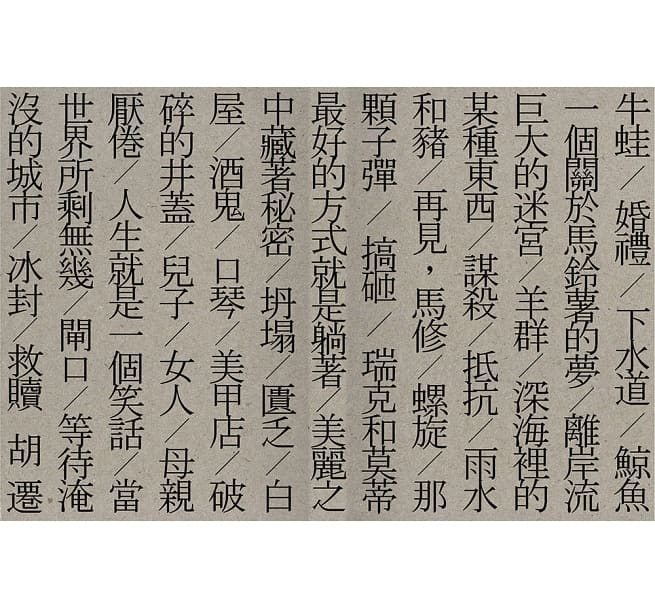 牛蛙／婚禮／下水道／鯨魚
一個關於馬鈴薯的夢／離岸流
巨大的迷宮／羊群／深海裡的
某種東西／謀殺／抵抗／雨水
和豬／再見，馬修／螺旋／那
顆子彈／搞砸／瑞克和莫蒂
最好的方式就是躺著／美麗之
中藏著秘密／坍塌／匱乏／白
屋／酒鬼／口琴／美甲店／破
碎的井蓋／兒子／女人／母親
厭倦／人生就是一個笑話／當
世界所剩無幾／閘口／等待淹
沒的城市／冰封／救贖 胡遷